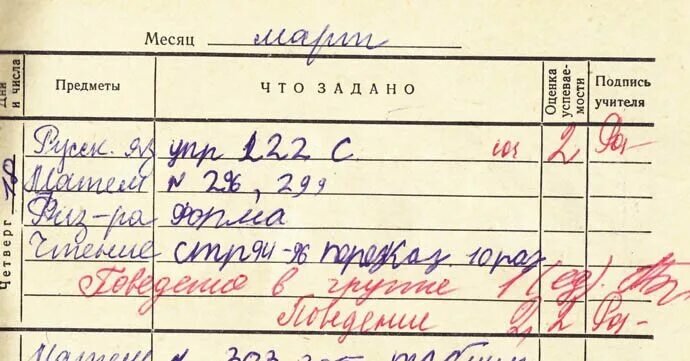 Месяц март
Дни и числа Предметы ЧТО ЗАДАНО Оценка успеваемости Подпись учителя
Четверг 10
Русск. яз упр 122 с. 2
Матем N 296, 299
Физ-ра форма
Чтение стр 94-96 10 раз
Поведение в группе 1 (ед).
Поведение 2, 2
Матем N 303